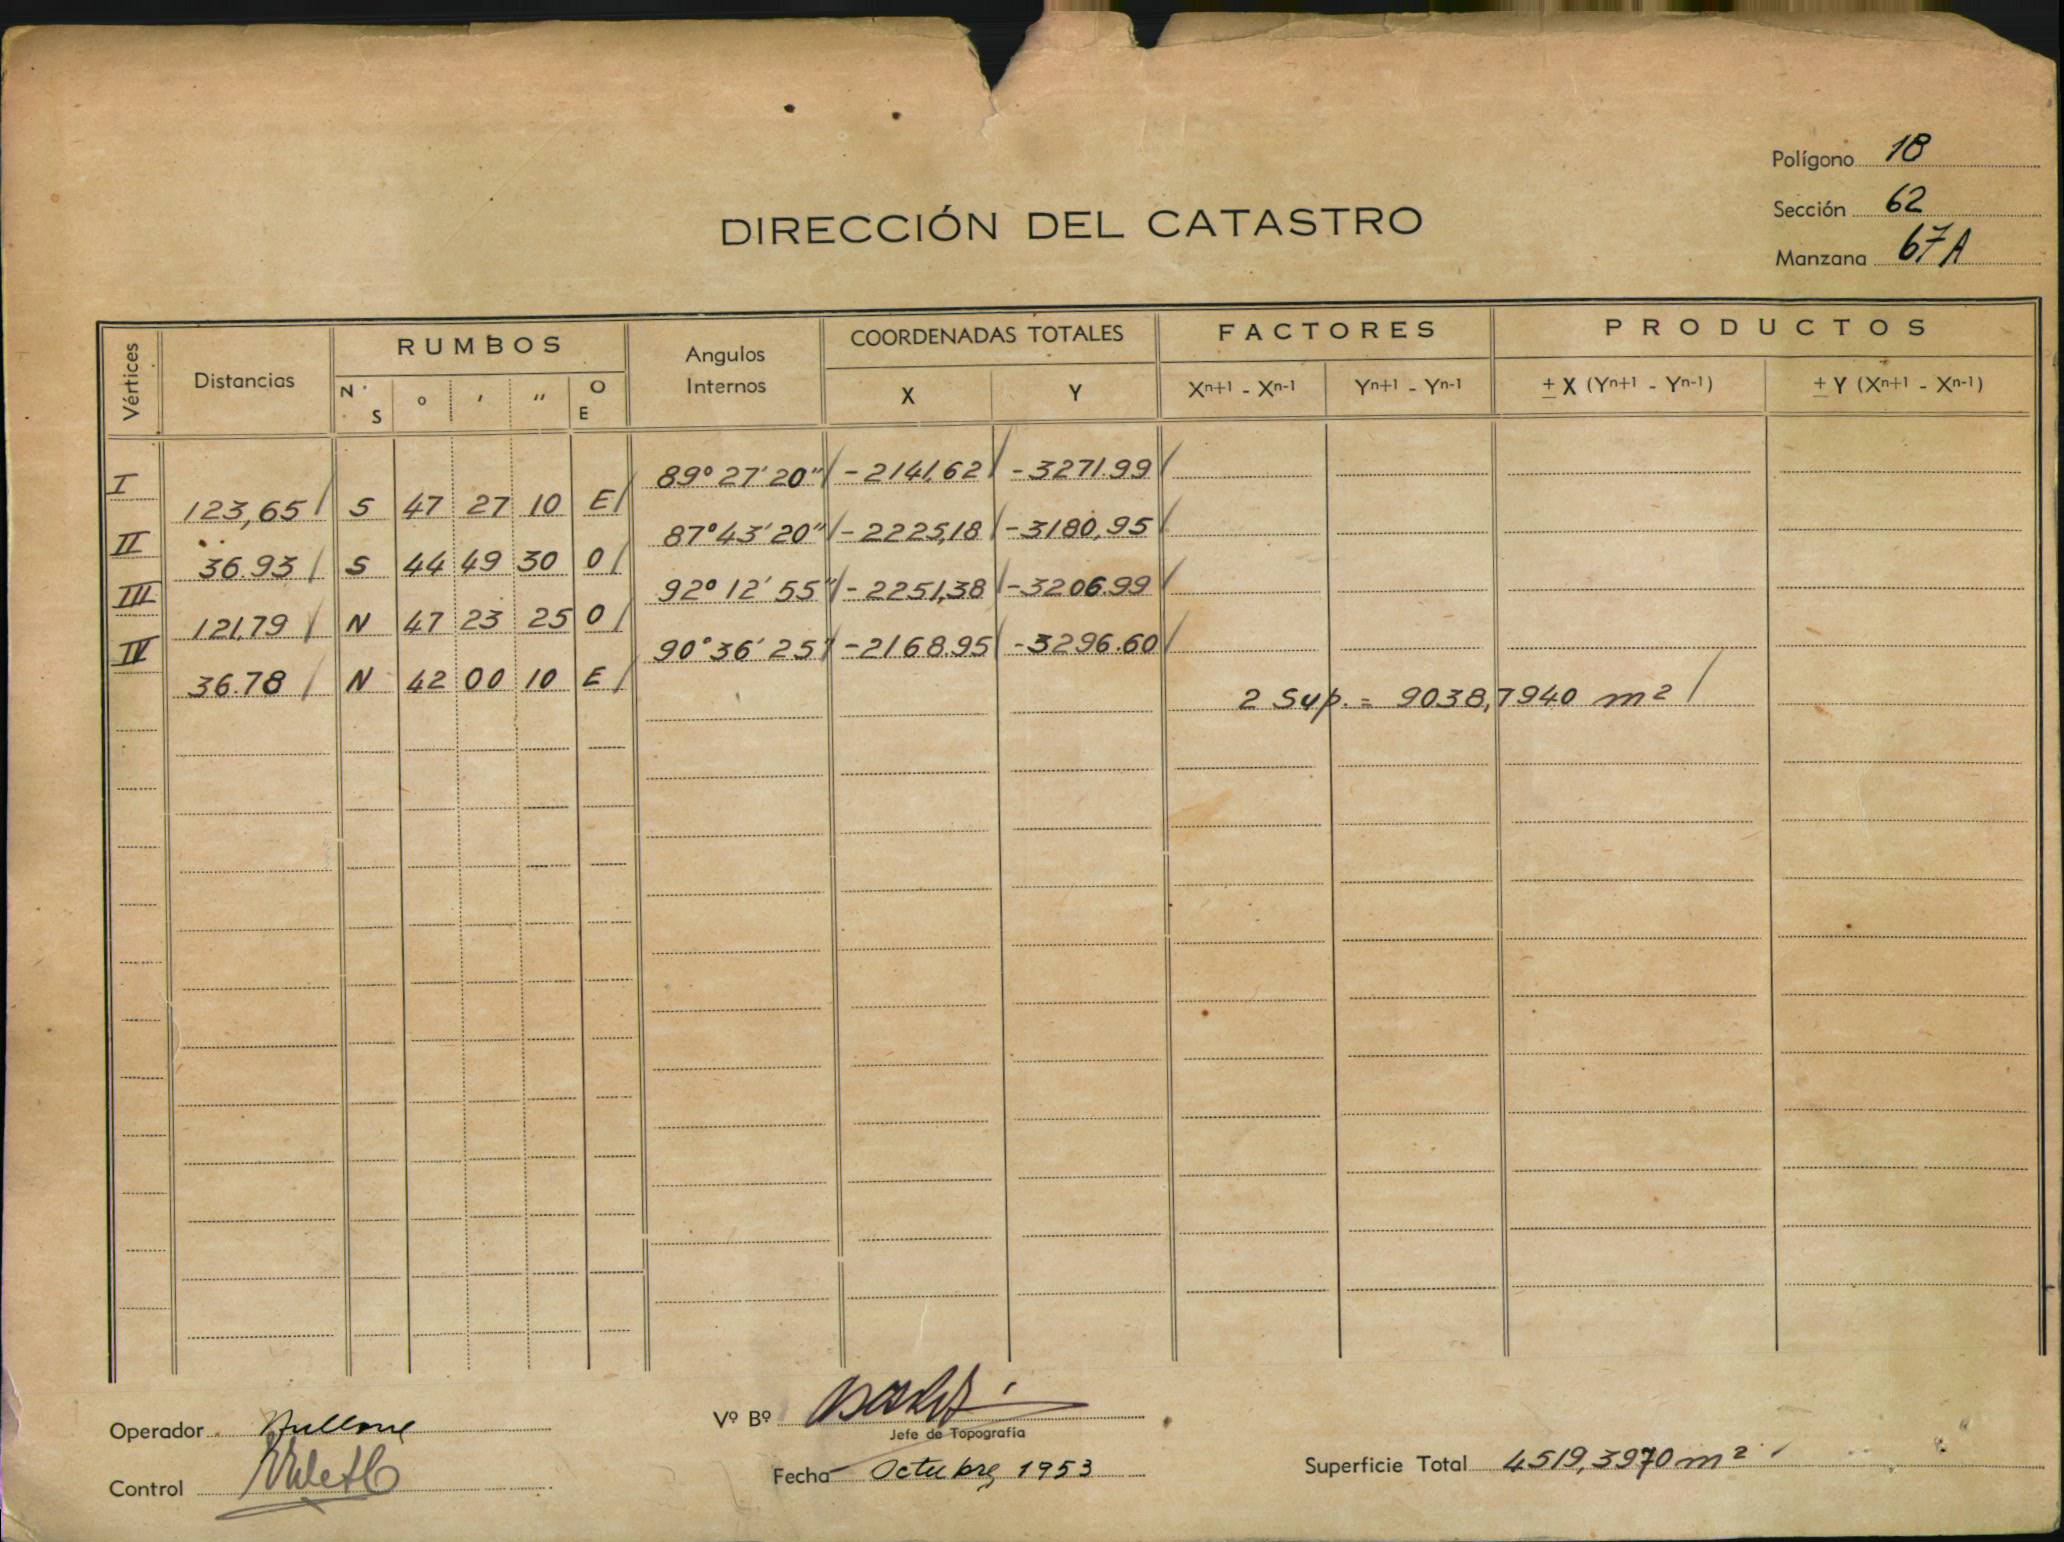 Polígono 18
Sección 62
DIRECCIÓN DEL CATASTRO
Manzana 67A
Vértices Distancias RUMBOS Angulos Internos COORDENADAS TOTALES FACTORES PRODUCTOS
N. S ° ′ ″ O E X Y Xn+1 - Xn-1 Yn+1 - Yn-1 ± X (Yn+1 - Yn-1) ± Y (Xn+1 - Xn-1)
I 89° 27′ 20″ -2141,62 -3271.99
123,65 S 47 27 10 E
II 87° 43′ 20″ -2225,18 -3180,95
36.93 S 44 49 30 O
III 92° 12′ 55″ -2251,38 -3206.99
121,79 N 47 23 25 O
IV 90° 36′ 25″ -2168.95 -3296.60
36.78 N 42 00 10 E
2 Sup. = 9038,7940 m²
Operador
Vº Bº
Jefe de Topografía
Control
Fecha Octubre 1953
Superficie Total 4519,3970 m²